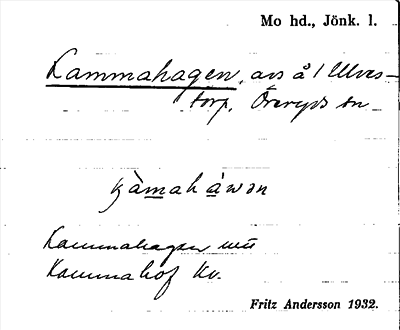 Mo hd., Jönk. l.
Lammahagen, avs å 1 Ulves-
torp, Öreryds sn
Lammahagen
Lammahof kv.
Fritz Andersson 1932.